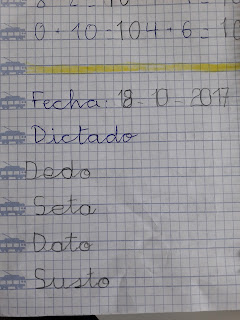 0 + 10 = 10 4 + 6 = 10
Fecha: 18-10-2017
Dictado
Dedo
Seta
Dato
Susto